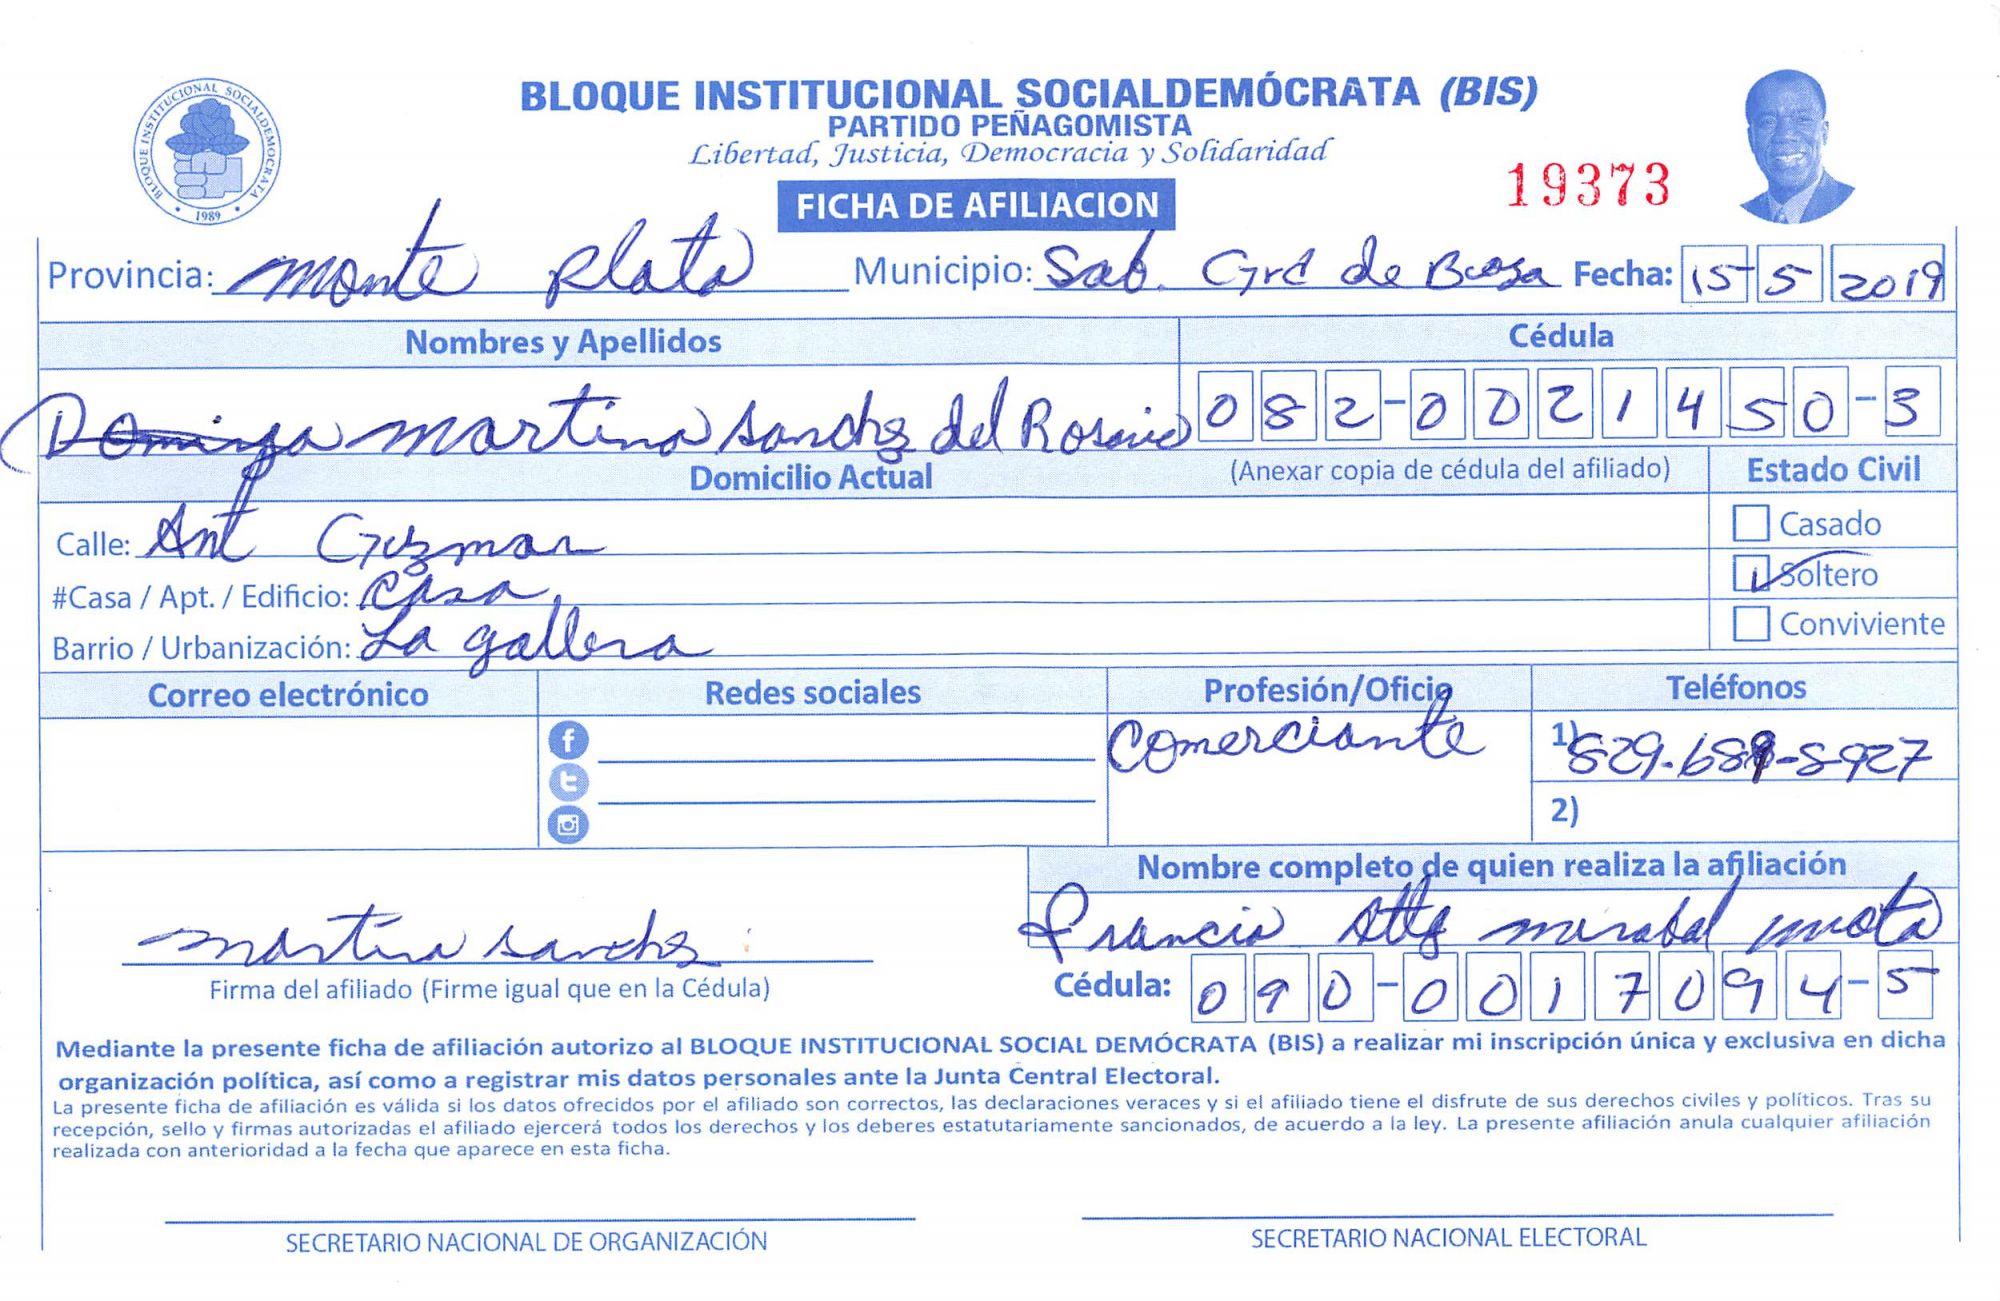 BLOQUE INSTITUCIONAL SOCIALDEMÓCRATA (BIS)
PARTIDO PEÑAGOMISTA
Libertad, Justicia, Democracia y Solidaridad
BLOQUE INSTITUCIONAL SOCIALDEMOCRATA
1989
19373
FICHA DE AFILIACION
Provincia: Monte Plata Municipio: Sab. Grd de Boya Fecha: 15 5 2019
Nombres y Apellidos Cédula
Dominga martina sanchz del Rosario 082-0021450-3
Domicilio Actual (Anexar copia de cédula del afiliado) Estado Civil
Calle: Ant Guzman Casado
#Casa / Apt. / Edificio: Casa Soltero
Barrio / Urbanización: La gallera Conviviente
Correo electrónico Redes sociales Profesión/Oficio Teléfonos
Comerciante 1) 829-689-8927
2)
Nombre completo de quien realiza la afiliación
martina sanchz Francia mirabal
Firma del afiliado (Firme igual que en la Cédula) Cédula: 090-0017094-5
Mediante la presente ficha de afiliación autorizo al BLOQUE INSTITUCIONAL SOCIAL DEMÓCRATA (BIS) a realizar mi inscripción única y exclusiva en dicha
organización política, así como a registrar mis datos personales ante la Junta Central Electoral.
La presente ficha de afiliación es válida si los datos ofrecidos por el afiliado son correctos, las declaraciones veraces y si el afiliado tiene el disfrute de sus derechos civiles y políticos. Tras su
recepción, sello y firmas autorizadas el afiliado ejercerá todos los derechos y los deberes estatutariamente sancionados, de acuerdo a la ley. La presente afiliación anula cualquier afiliación
realizada con anterioridad a la fecha que aparece en esta ficha.
SECRETARIO NACIONAL DE ORGANIZACIÓN SECRETARIO NACIONAL ELECTORAL